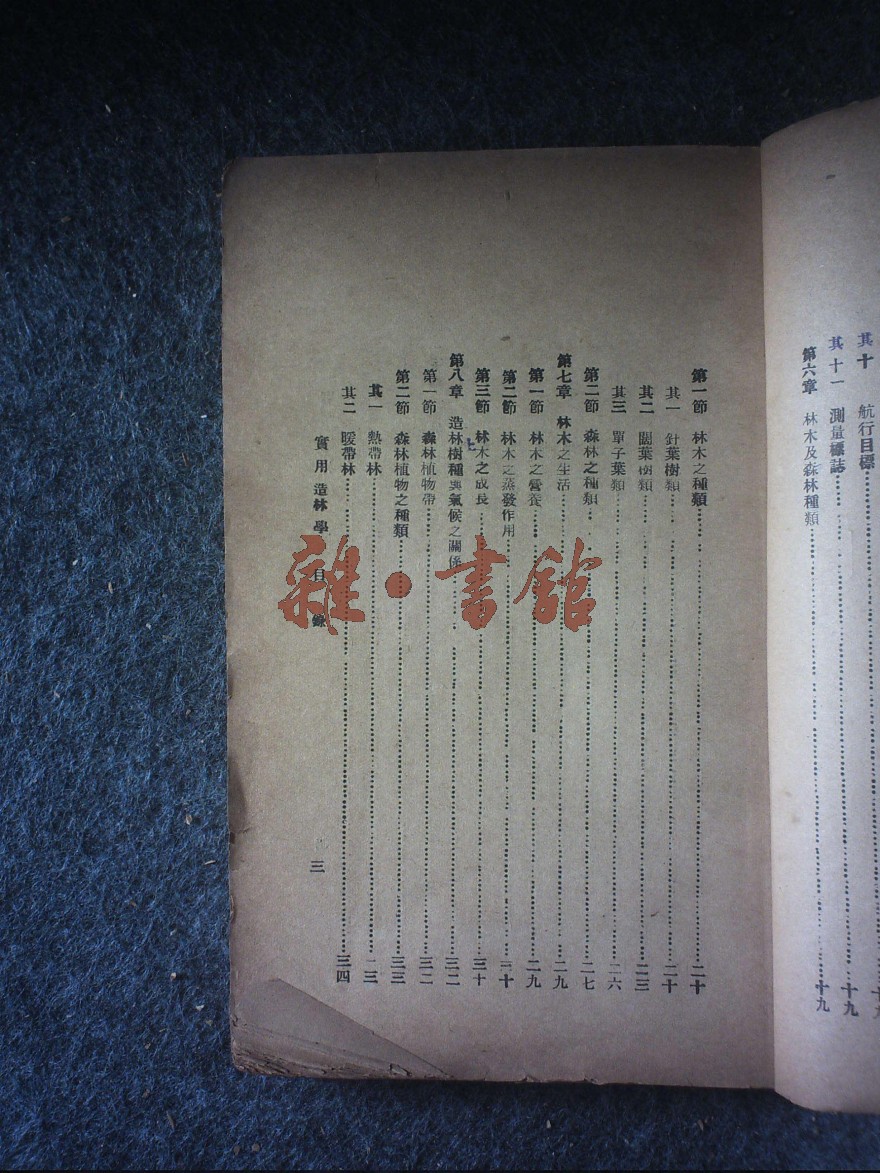 其十　航行目標……十九
其十一　測量標誌……十九
第六章　林木及森林種類……十九
第一節　林木之種類……二十
其一　針葉樹類……二十
其二　闊葉樹類……二三
其三　單子葉類……二六
第二節　森林之種類……二七
第七章　林木之生活……二九
第一節　林木之營養……二九
第二節　林木之蒸發作用……三十
第三節　林木之成長……三十
第八章　造林樹種與氣候之關係……三二
第一節　森林植物帶……三二
第二節　森林植物之種類……三三
其一　熱帶林……三三
其二　暖帶林……三四
實用造林學　目錄　三
雜·書館